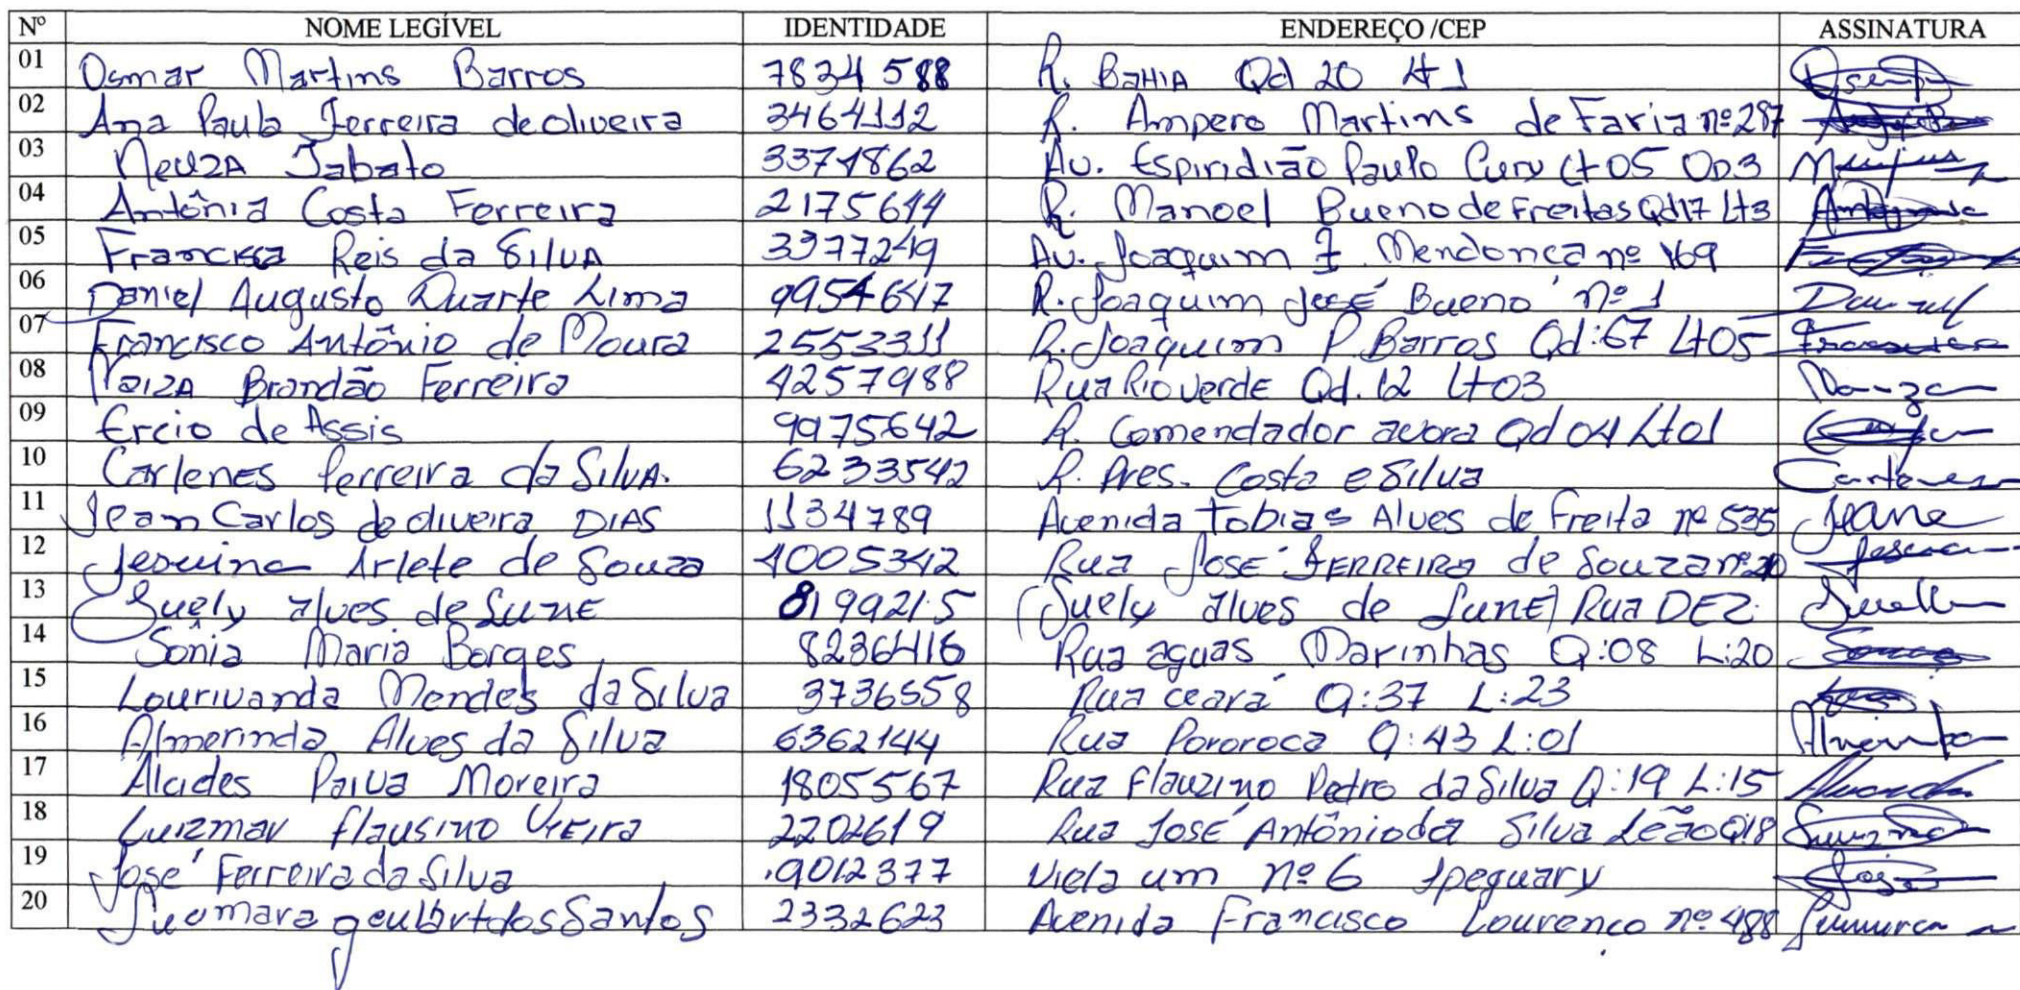 Nº NOME LEGÍVEL IDENTIDADE ENDEREÇO /CEP ASSINATURA
01 Osmar Martins Barros 7834588 R. BAHIA Qd 20 Lt 1
02 Ana Paula Ferreira de oliveira 3464112 R. Ampero Martins de Faria nº 287
03 NeuzA Jabato 3371862 Av. Espiridião Paulo Cury Lt 05 QD3
04 Antônia Costa Ferreira 2175644 R. Manoel Bueno de Freitas Qd17 Lt3
05 Francisca Reis da SilvA 3377249 Av. Joaquim J. Mendonca nº 169
06 Daniel Augusto Duarte Lima 9954647 R. Joaquim José Bueno nº 1 Daniel
07 Francisco Antônio de Moura 2553311 R. Joaquim P. Barros Qd:67 Lt05
08 NaizA Brandão Ferreira 4257988 Rua Rio Verde Qd. 12 Lt03
09 Ercio de Assis 9975642 R. Comendador avora Qd 04 Lt01
10 Carlenes ferreira da SilvA. 6233542 R. Pres. Costa e Silva
11 Jean Carlos de oliveira DIAS 1134789 Avenida Tobias Alves de Freita nº 535 Jeane
12 Jesuina Arlete de Souza 4005342 Rua José FERREIRA de Souza nº 20
13 Suely alves de 8199215 (Suely alves de Rua DEZ.
14 Sônia Maria Borges 8236416 Rua aguas Marinhas Q:08 L:20
15 Lourivanda Mendes da Silva 3736558 Rua ceará Q:37 L:23
16 Almerinda Alves da Silva 6362144 Rua Pororoca Q:43 L:01
17 Alcides Paiva Moreira 1805567 Rua Flauzino Pedro da Silva Q:19 L:15
18 Luizmar flausino Vieira 2202619 Rua José Antônio da Silva Leão Q18
19 José Ferreira da Silva 9012377 Viela um nº 6 Ipeguary
20 goulart dos Santos 2332623 Avenida Francisco Lourenco nº 488